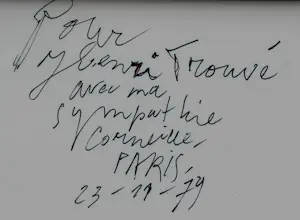 Pour
Henri Trouvé
avec ma
sympathie
Corneille,
PARIS,
23-11-79